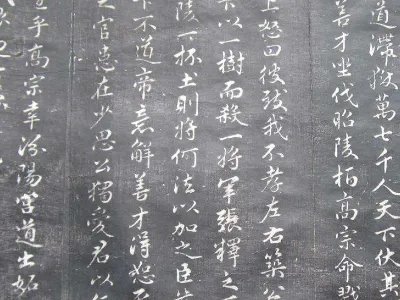 道滯獄萬七千人天下伏其
善才坐伐昭陵柏高宗命戮
上怒曰彼致我不孝左右策公
以一樹而殺一將軍張釋之
陵一抔土則將何法以加之臣
不道帝意解善才得恕
官患在少恩公獨愛君以
乎高宗幸汾陽宮道出妬